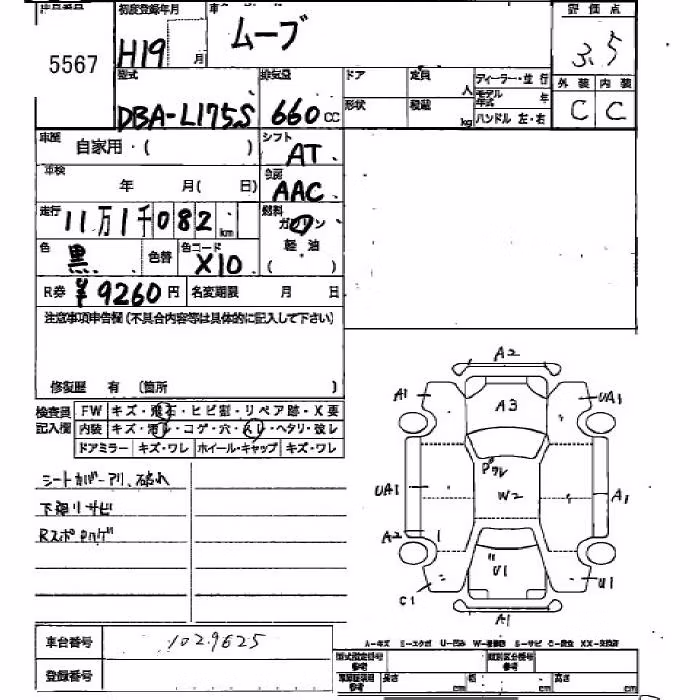 5567
初度登録年月
H19 月
車
ムーブ
評価点
3.5
型式
DBA-L175S
排気量
660 CC
ドア
定員
人
ディーラー・並行
モデル年式 年
形状
積載
kg
ハンドル 左・右
外装 内装
C C
車歴
自家用・( )
シフト
AT
車検
年 月( 日)
冷房
AAC
走行
11万1千082 km
燃料
ガソリン
軽油
( )
色
黒
色替
色コード
X10
R券 ¥9260円
名変期限 月 日
注意事項申告欄(不具合内容等は具体的に記入して下さい)
修復歴 有 (箇所 )
検査員記入欄
FW キズ・飛石・ヒビ割・リペア跡・X要
内装 キズ・汚レ・コゲ・穴・スレ・ヘタリ・破レ
ドアミラー キズ・ワレ ホイール・キャップ キズ・ワレ
シートカバーアリ、破れ
下廻リサビ
Rスポ Pハゲ
A2
A1
A3
UA1
Pワレ
UA1
W2
A1
A2
U1
C1
U1
A1
A-キズ U-凹み S-サビ
車台番号
1029625
登録番号
型式指定番号 参考
類別区分番号 参考
長さ cm
幅 cm
高さ cm